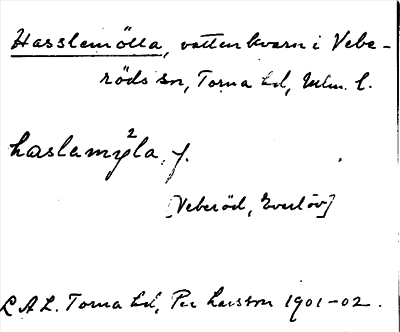 Hasslemölla, vattenkvarn i Vebe-
röds sn, Torna hd, Mlm. l.
haslamy²la, f.
[Veberöd, Everlöv]
L A L. Torna hd, Per Larsson 1901-02.